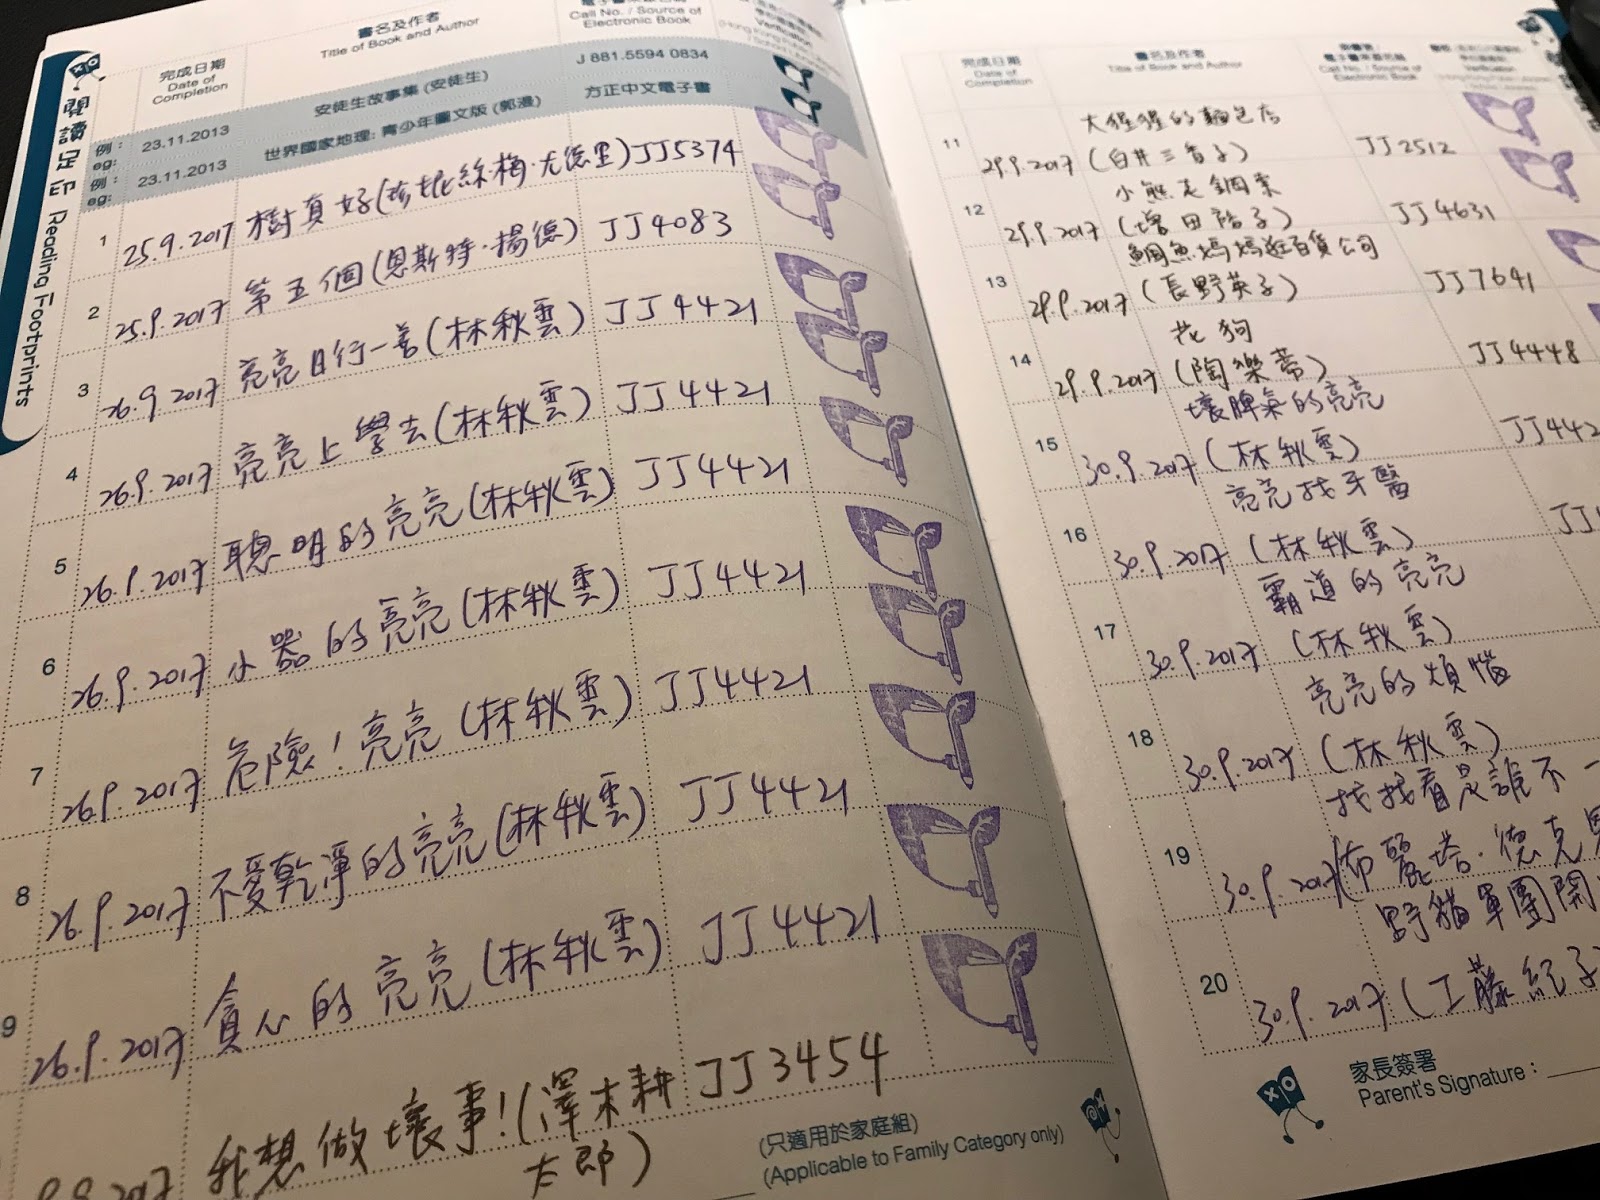 閱讀足印 Reading Footprints
完成日期
Date of
Completion
書名及作者
Title of Book and Author
Call No. / Source of
Electronic Book
Verification
例：
eg:
23.11.2013 安徒生故事集 (安徒生) J 881.5594 0834
例：
eg:
23.11.2013 世界國家地理: 青少年圖文版 (郭漫) 方正中文電子書
1 25.9.2017 樹真好(珍妮絲梅·尤德里) JJ5374
2 25.9.2017 第五個(恩斯特·揚德) JJ4083
3 26.9.2017 亮亮日行一善(林秋雲) JJ4421
4 26.9.2017 亮亮上學去(林秋雲) JJ4421
5 26.9.2017 聰明的亮亮(林秋雲) JJ4421
6 26.9.2017 小器的亮亮(林秋雲) JJ4421
7 26.9.2017 危險！亮亮(林秋雲) JJ4421
8 26.9.2017 不愛乾淨的亮亮(林秋雲) JJ4421
9 26.9.2017 貪心的亮亮(林秋雲) JJ4421
9.2017 我想做壞事！(澤木耕 JJ3454
太郎)
(只適用於家庭組)
(Applicable to Family Category only)
完成日期
Date of
Completion
書名及作者
Title of Book and Author
電子書來源名稱
Call No. / Source of
Electronic Book
Verification
大猩猩的麵包店
11 29.9.2017 (白井三香子) JJ2512
小熊走鋼索
12 29.9.2017 (增田裕子) JJ4631
鯛魚媽媽逛百貨公司
13 29.9.2017 (長野英子) JJ7641
花狗
14 29.9.2017 (陶樂蒂) JJ4448
壞脾氣的亮亮
15 30.9.2017 (林秋雲) JJ442
亮亮找牙醫
16 30.9.2017 (林秋雲) JJ
霸道的亮亮
17 30.9.2017 (林秋雲)
亮亮的煩惱
18 30.9.2017 (林秋雲)
找找看是誰不一
19 30.9.2017 (布麗塔·德克
野貓軍團開
20 30.9.2017 (工藤紀子
家長簽署
Parent's Signature :